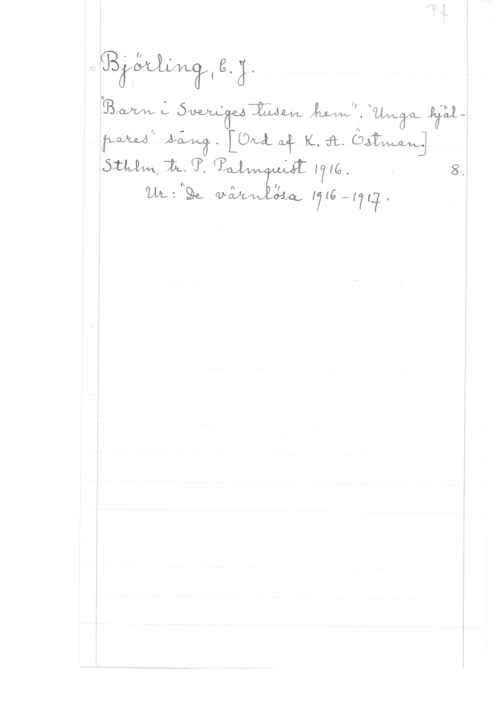 Pf
Björling, C. J.
"Barn i Sveriges tusen hem". "Unga hjäl-
pares" sång. [Ord af K. A. Östman.]
Sthlm, tr. P. Palmquist 1916. 8.
Ur: "De värnlösa 1916-1917.